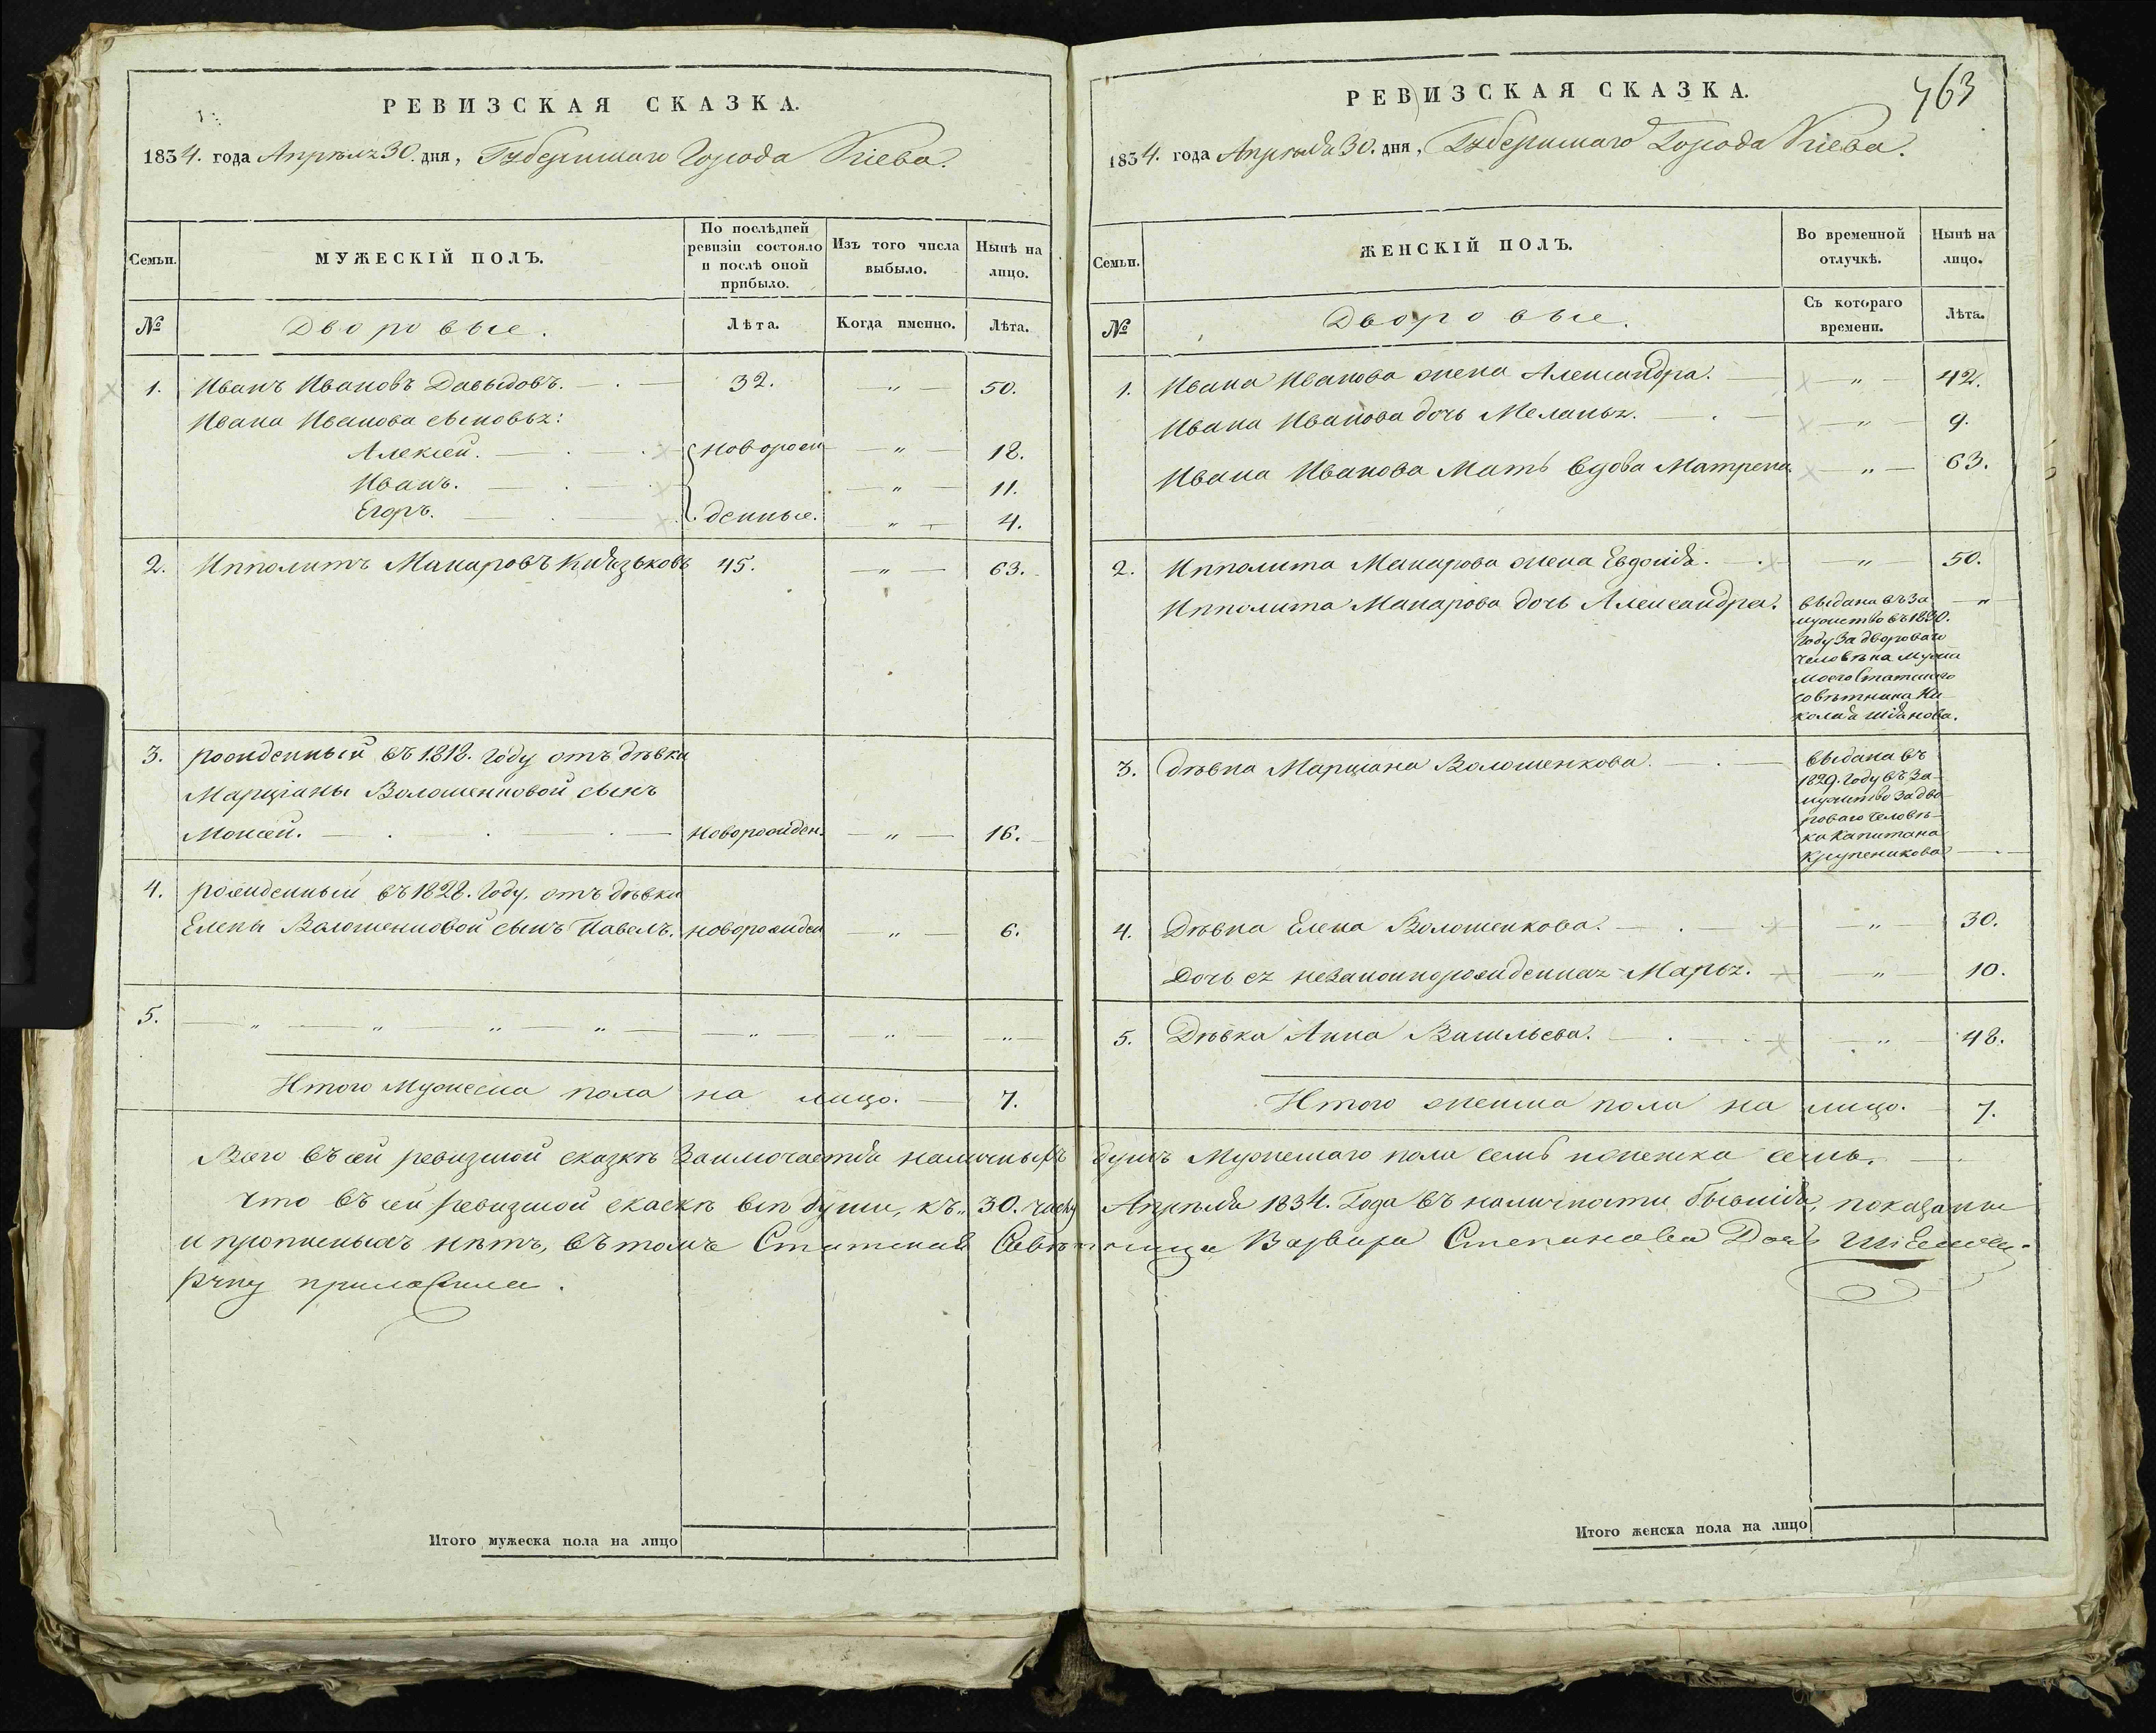 РЕВИЗСКАЯ СКАЗКА.
1834. года Апрѣля 30. дня, Губернскаго Города Кіева.
Семьи.
МУЖЕСКІЙ ПОЛЪ.
По послѣдней ревизіи состояло и послѣ оной прибыло.
Изъ того числа выбыло.
Нынѣ на лицо.
№
Дворовые.
Лѣта.
Когда именно.
Лѣта.
1. Иванъ Ивановъ Давыдовъ. 32. — „ — 50.
Ивана Иванова сыновья:
Алексей. новорож — „ — 12.
Иванъ. — „ — 11.
Егоръ. денные. — „ — 4.
2. Ипполитъ Макаровъ Князьковъ 45. — „ — 63.
3. рожденный въ 1818. Году отъ дѣвки
Марціаны Волошенковой сынъ
Моисей. новорожден. — „ — 16.
4. рожденный въ 1828. Году. отъ дѣвки
Елены Волошенковой сынъ Павелъ. новорожден — „ — 6.
5. — „ — „ — „ — „ — „ — „ — „ —
Итого Мужеска пола на лицо. — 7.
Итого мужеска пола на лицо
РЕВИЗСКАЯ СКАЗКА.
763
1834. года Апрѣля 30. дня, Губернскаго Города Кіева.
Семьи.
ЖЕНСКІЙ ПОЛЪ.
Во временной отлучкѣ.
Нынѣ на лицо.
№
Дворовые.
Съ котораго времени.
Лѣта.
1. Ивана Иванова жена Александра. — „ — 42.
Ивана Иванова дочь Меланья. — „ — 9.
Ивана Иванова Мать вдова Матрена — „ — 63.
2. Ипполита Макарова жена Евдокія. — „ — 50.
Ипполита Макарова дочь Александра. выдана въ за — „ —
мужство въ 1830.
Году за двороваго
человѣка мужа
моего Статскаго
совѣтника Ни
колая
3. Дѣвка Марціана Волошенкова. выдана въ
1829. Году въ за-
мужство за дво
роваго человѣ-
ка Капитана
Крупеникова
4. Дѣвка Елена Волошенкова. — „ — 30.
Дочь ея незаконнорожденная Марья. — „ — 10.
5. Дѣвка Анна Васильева. — „ — 48.
Итого женска пола на лицо. 7.
Всего въ сей ревизской сказкѣ Заключается наличныхъ душъ Мужескаго пола семь и женска семь.
Что въ сей ревизской скаскѣ всѣ души, къ 30. числу Апрѣля 1834. Года въ наличности бывшія, показаны
и прописныхъ нѣтъ, въ томъ Статская Совѣтница Варвара Степанова Дочь
руку приложила.
Итого женска пола на лицо